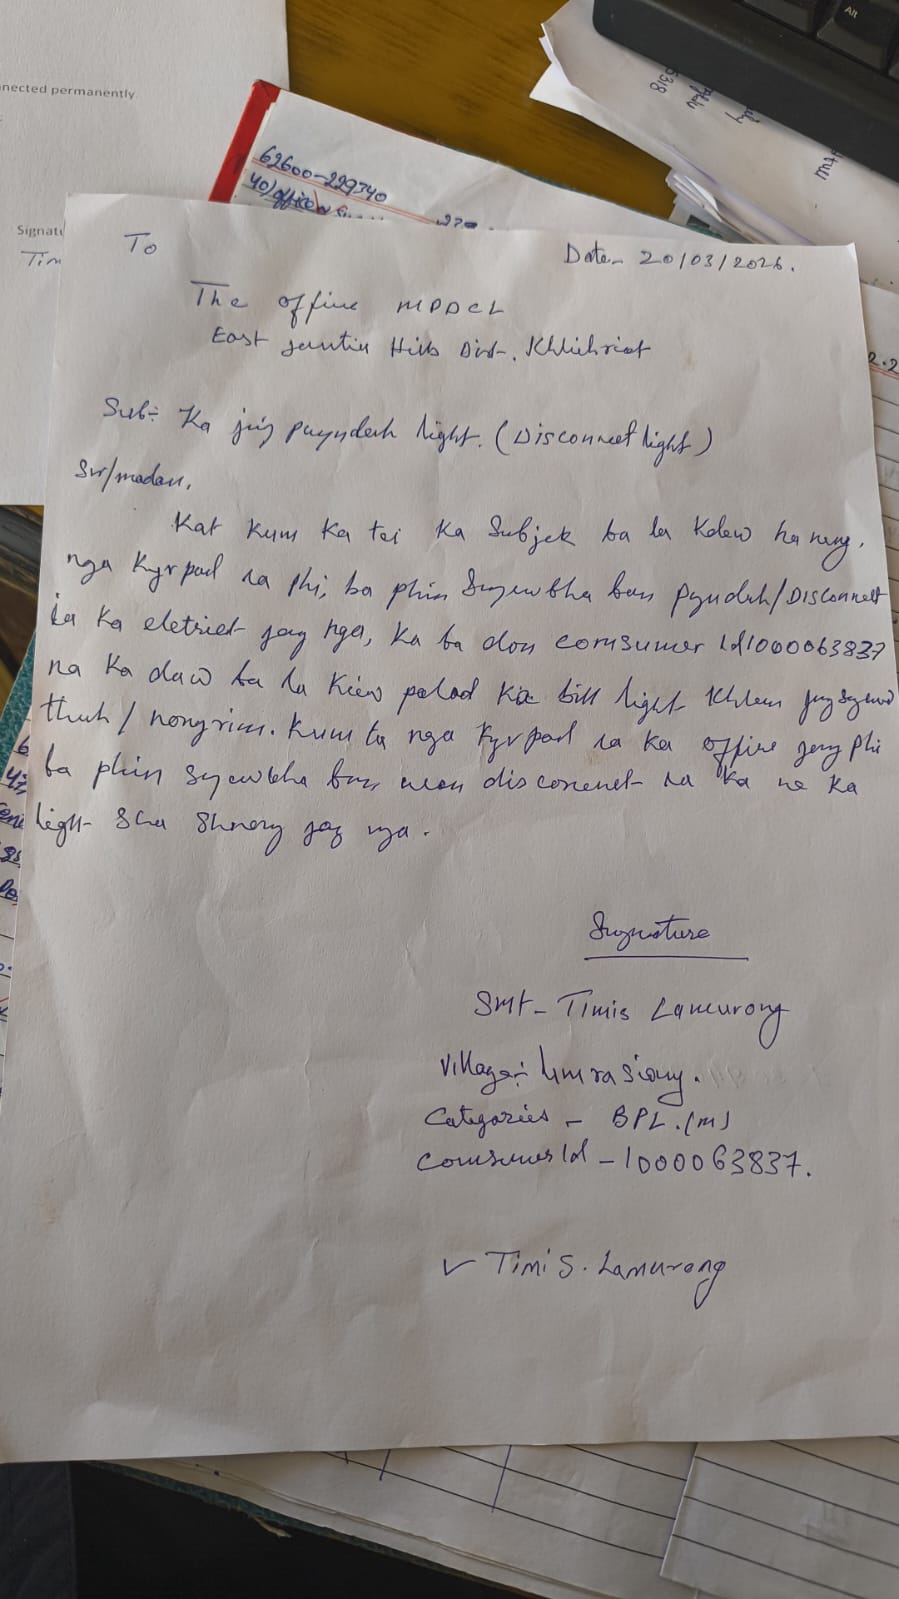 nnected permanently
Signatu
Tim
62600-229340
40) office
To
Date - 20/03/2026.
The office MPDCL
East Jaintia Hills Dist-, Khliehriat
Sub:- Ka jing pynduh light. (Disconnect light)
Sir/madam,
Kat kum ka tei ka Subjek ba la kdew haneng,
nga kyrpad ia phi, ba phin Sngewbha ban pynduh/Disconnect
ia ka eletrict jong nga, ka ba don comsumer Id 1000063837
na ka daw ba la kiew palad ka bill light khlem jingsngewthuh
/ nongrim. Kumta nga kyrpad ia ka office jong phi
ba phin sngewbha ban wan disconenet ia ka ne ka
light sha shnong jong nga.
Signature
Smt - Timis Lamurong
Village:- Umrasiang.
Categories - BPL.(M)
Comsumer Id - 1000063837.
✓ Timi S. Lamurong
Alt